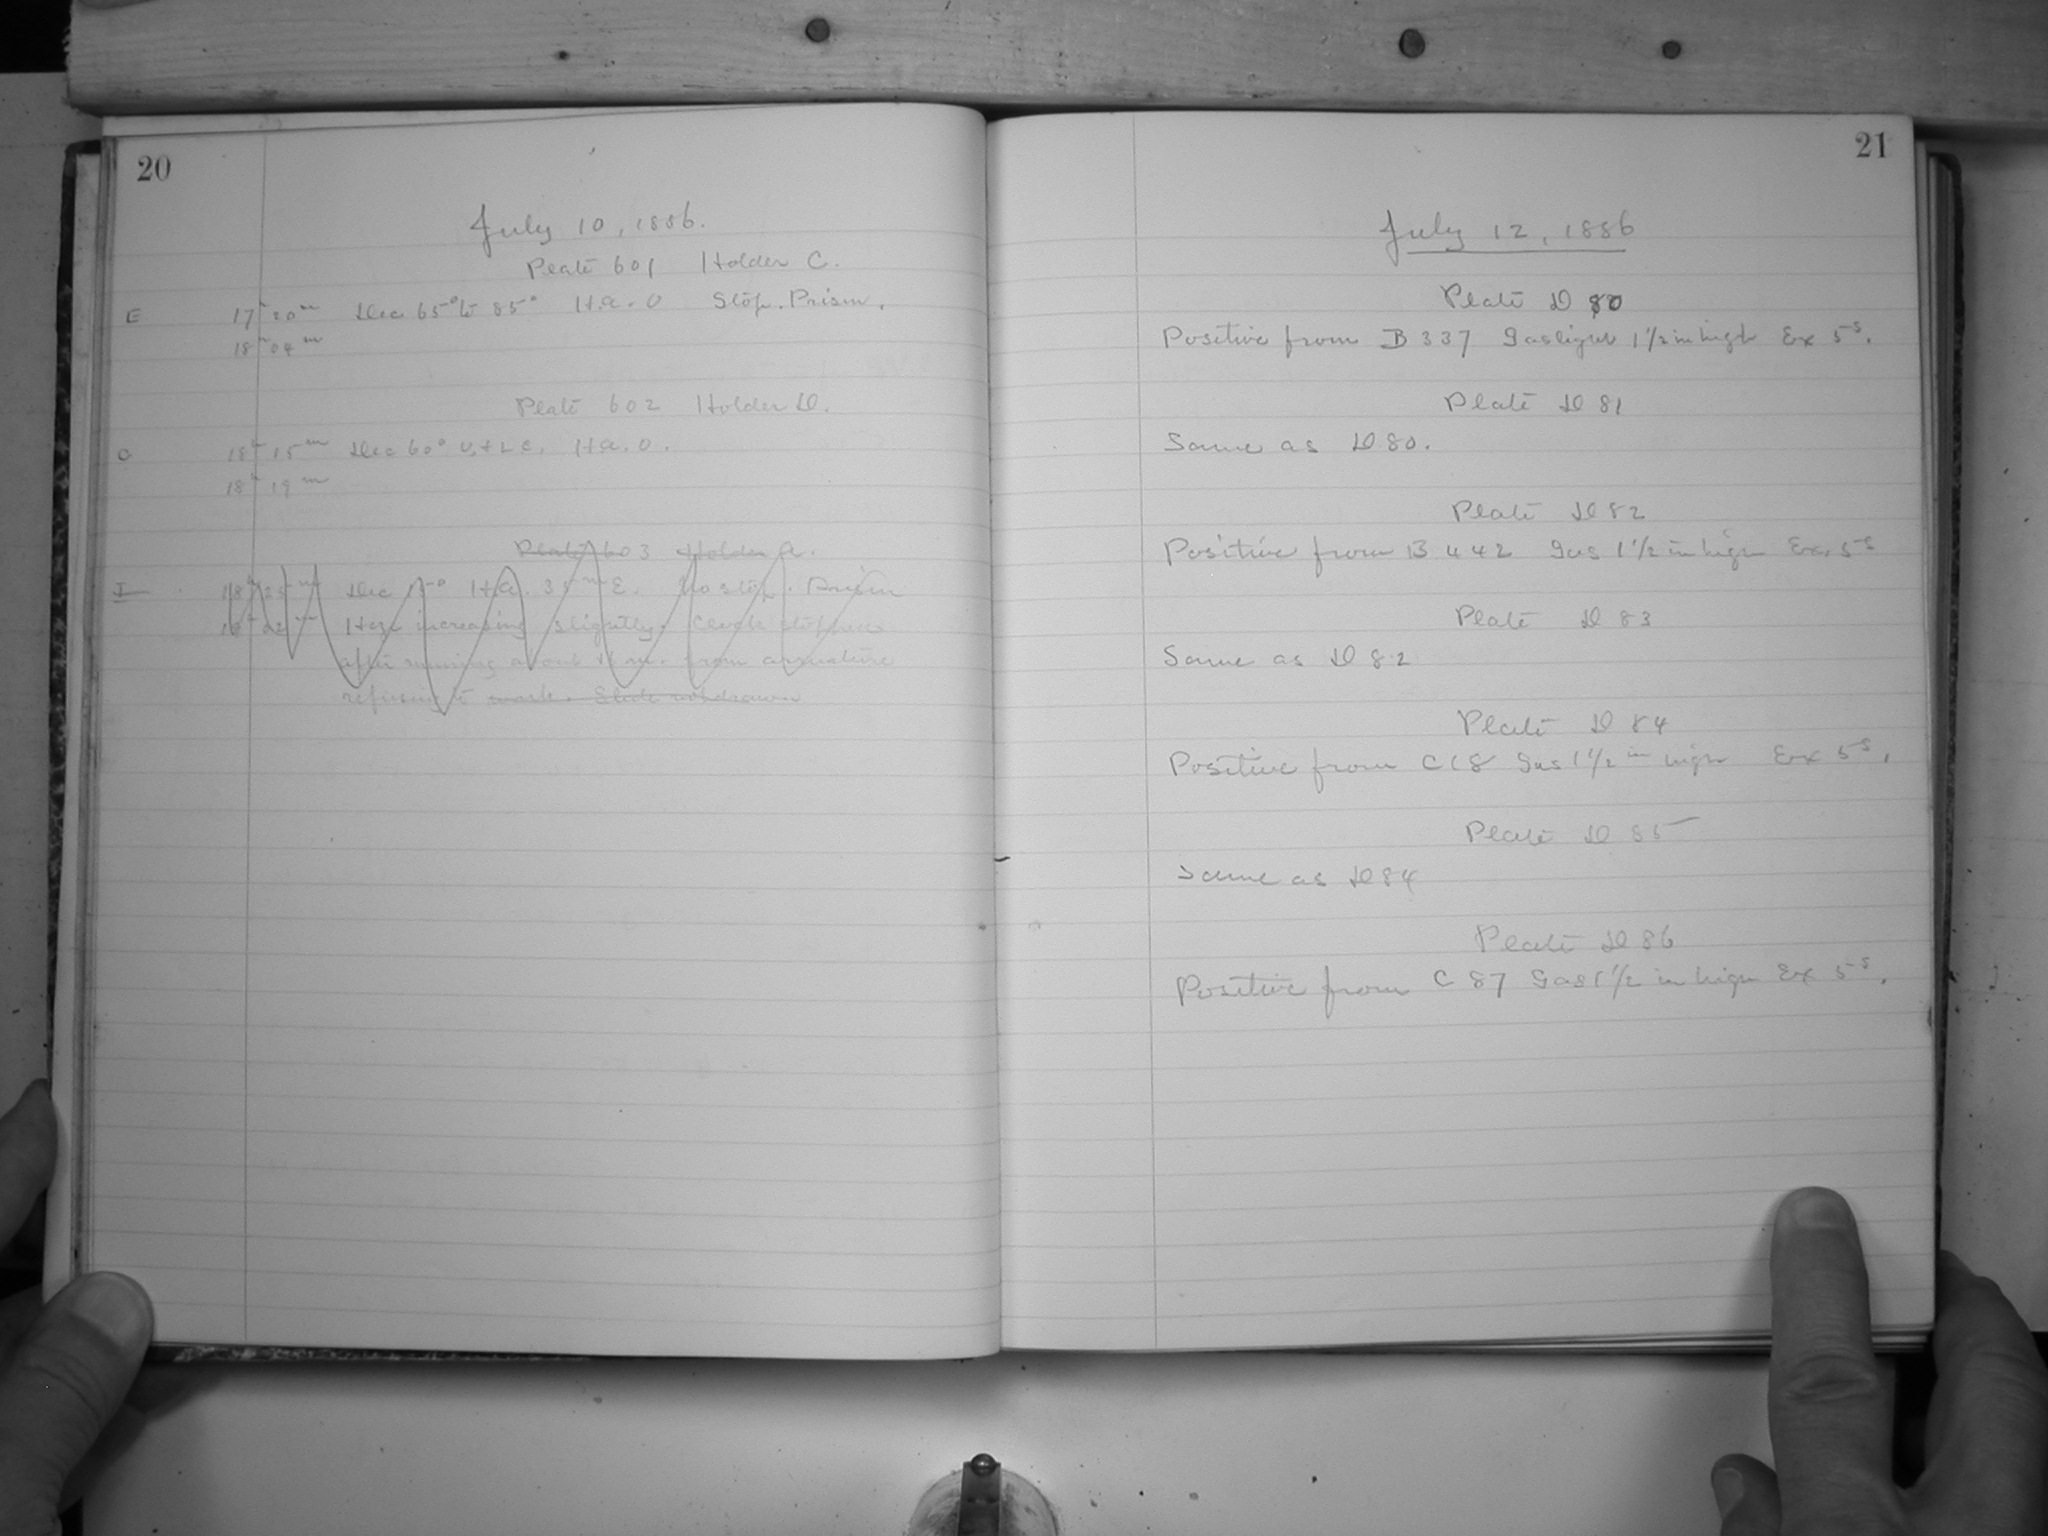 20
July 10, 1886.
Plate 601 Holder C.
E 17h 20m Dec 65° to 85° H.A. 0 Stop. Prism.
18h 04m
Plate 602 Holder D.
C 18h 15m Dec 60° U. + L C. H.A. 0.
18h 19m
Plate 603 Holder A.
I 18h 23m Dec 15° H.A. 35m E. No stop. Prism
Haze increasing slightly. Clock stopped
after running about 11m. from armature
refusing to work. Slide withdrawn
21
July 12, 1886
Plate D 80
Positive from B 337 Gaslight 1 1/2 in high Ex 5s.
Plate D 81
Same as D 80.
Plate D 82
Positive from B 442 Gas 1 1/2 in high Ex. 5s
Plate D 83
Same as D 82
Plate D 84
Positive from C 18 Gas 1 1/2 in high Ex 5s.
Plate D 85
Same as D 84
Plate D 86
Positive from C 87 Gas 1 1/2 in high Ex 5s.